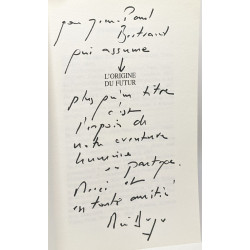 pour Jean-Paul
Bertrand
qui assume
L'ORIGINE
DU FUTUR
plus qu'un titre
c'est
l'espoir de
notre aventure
humaine
en partage.
Merci et
en toute amitié